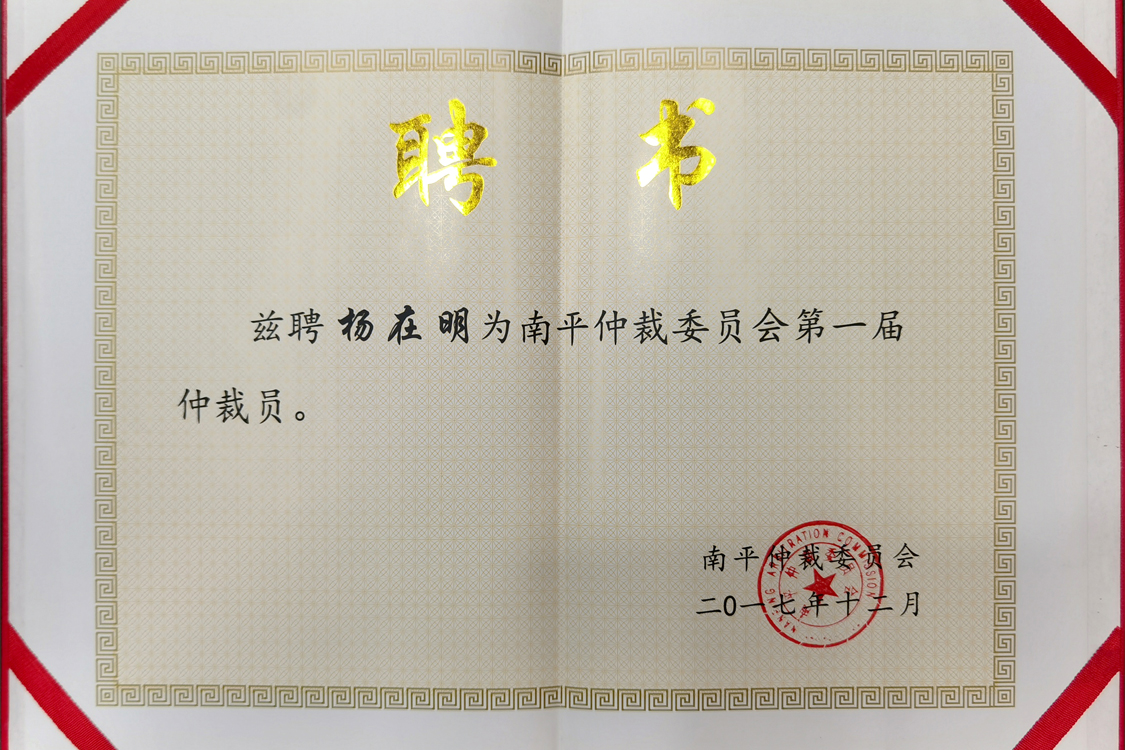 聘书
兹聘杨在明为南平仲裁委员会第一届
仲裁员。
南平仲裁委员会
二0一七年十二月
NANPING ARBITRATION COMMISSION
南平仲裁委员会